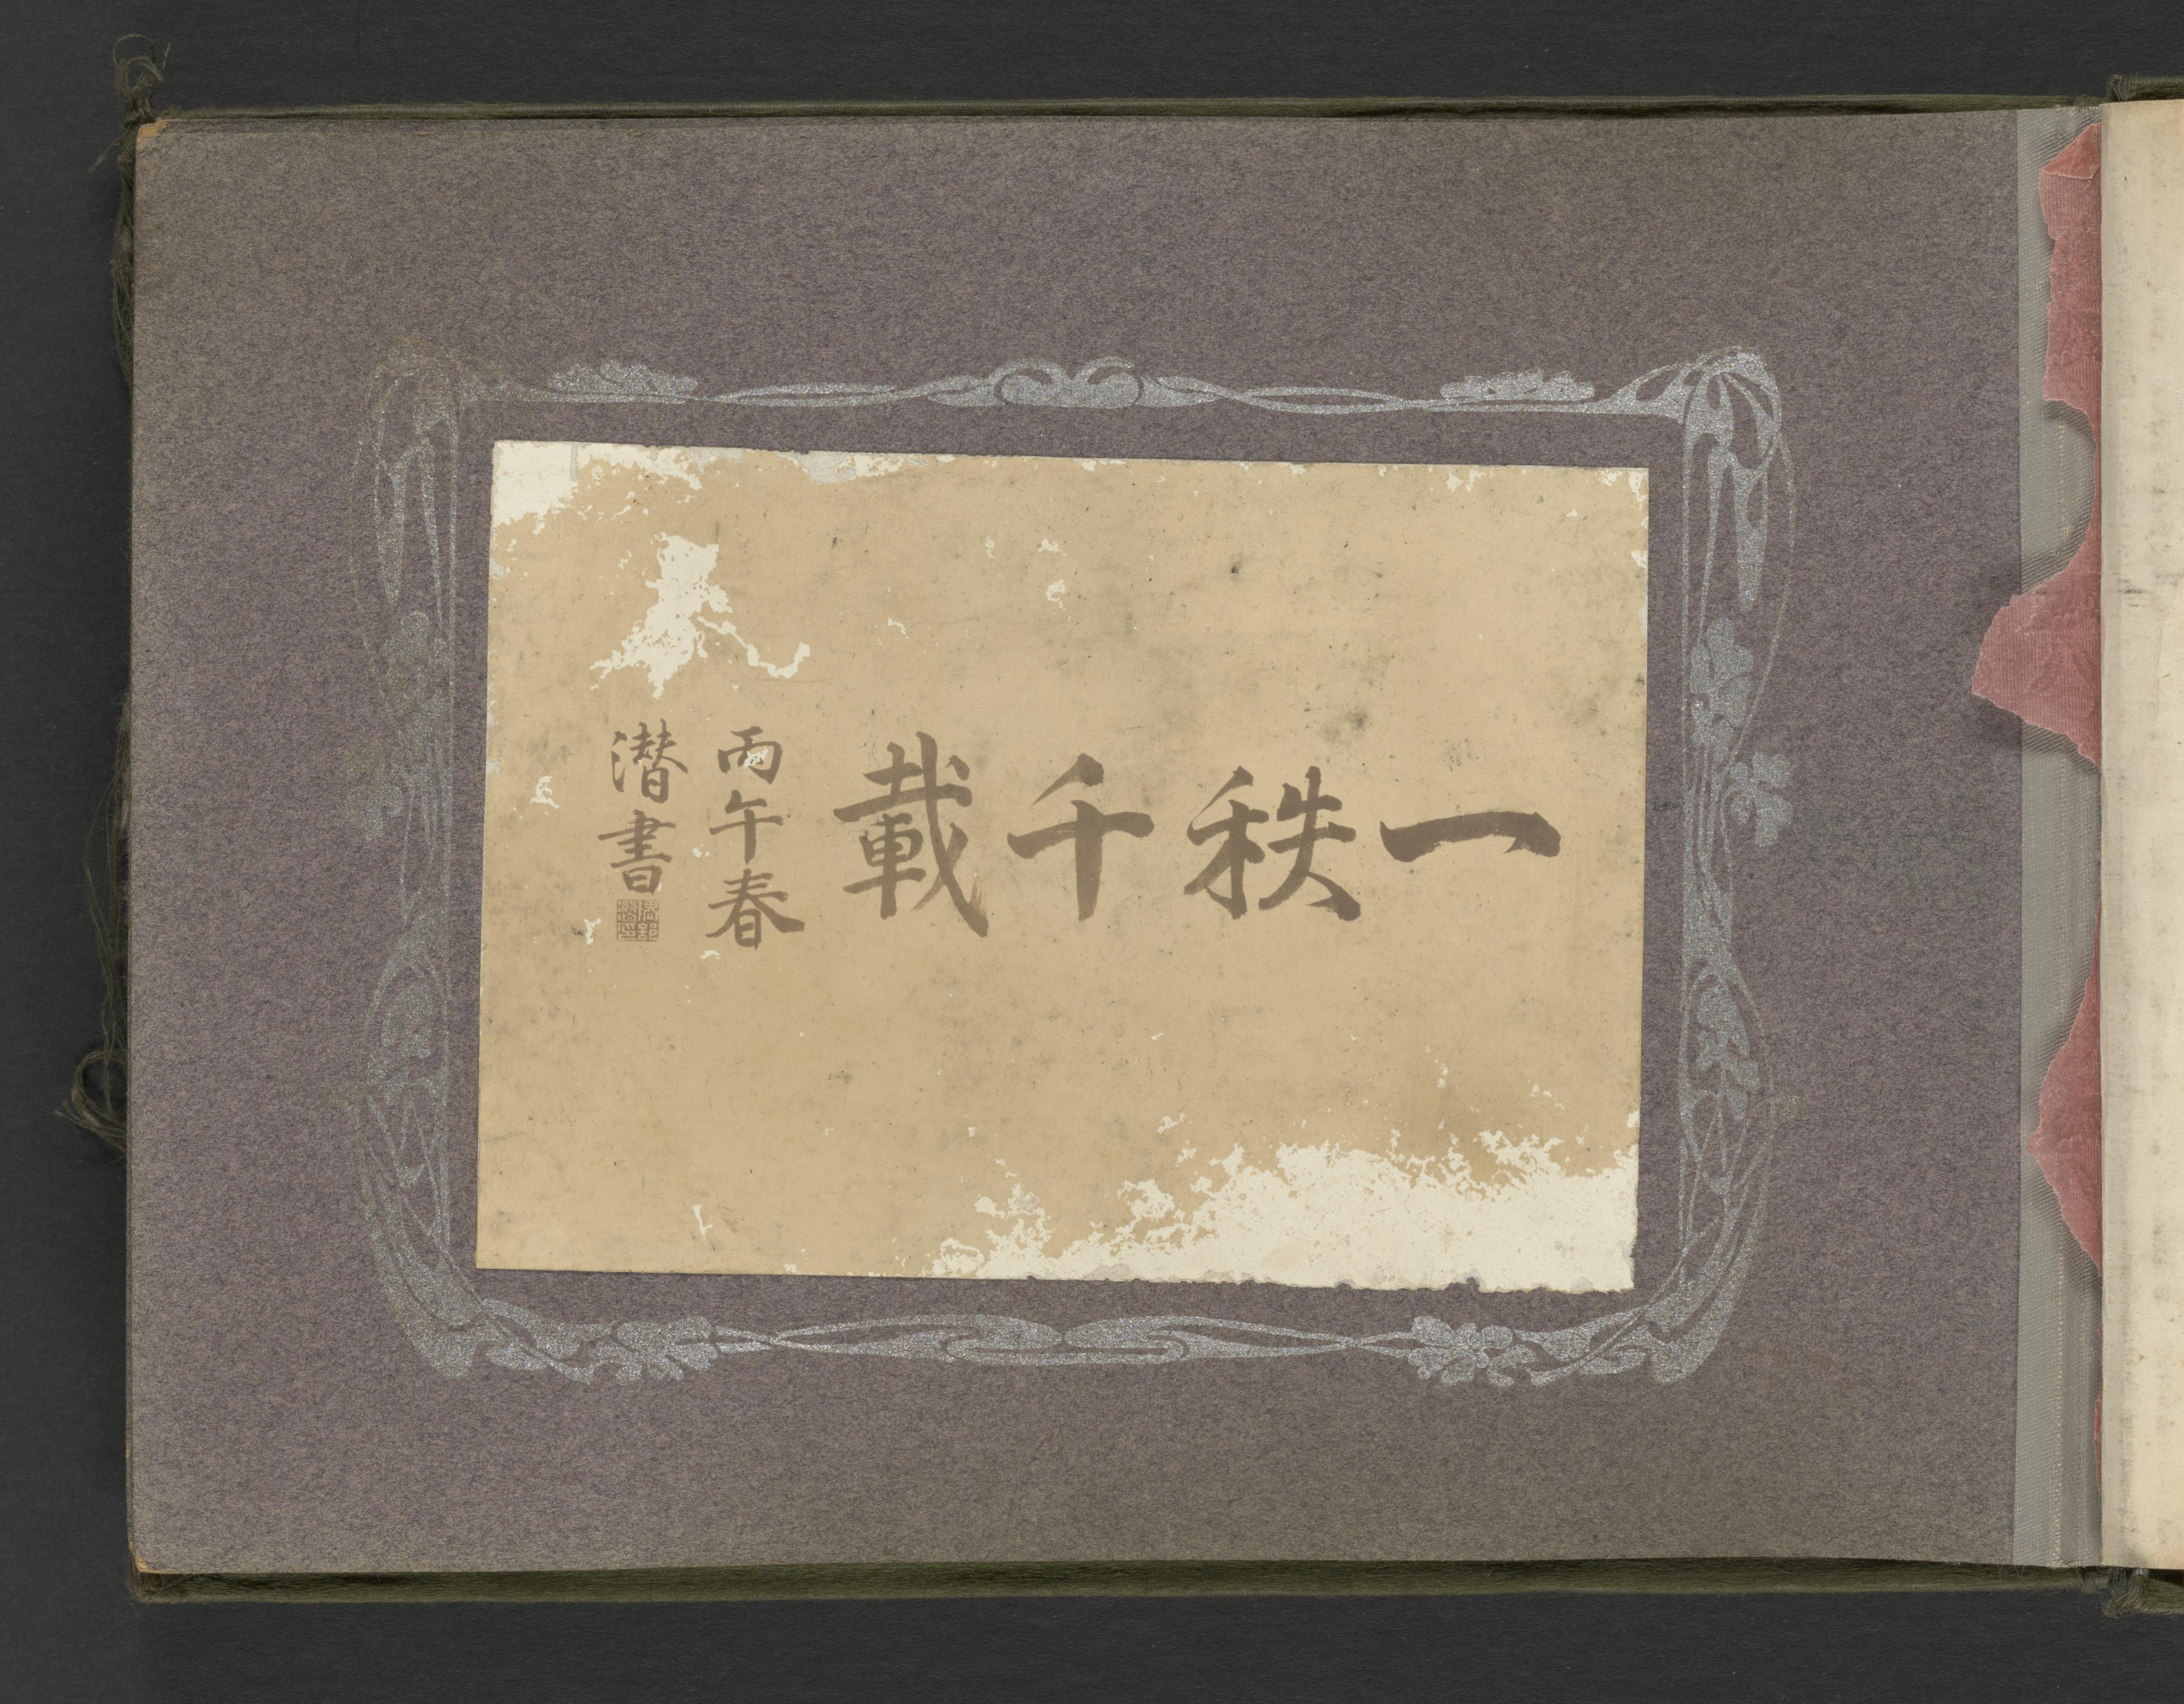 一秩千載
丙午春
潜書